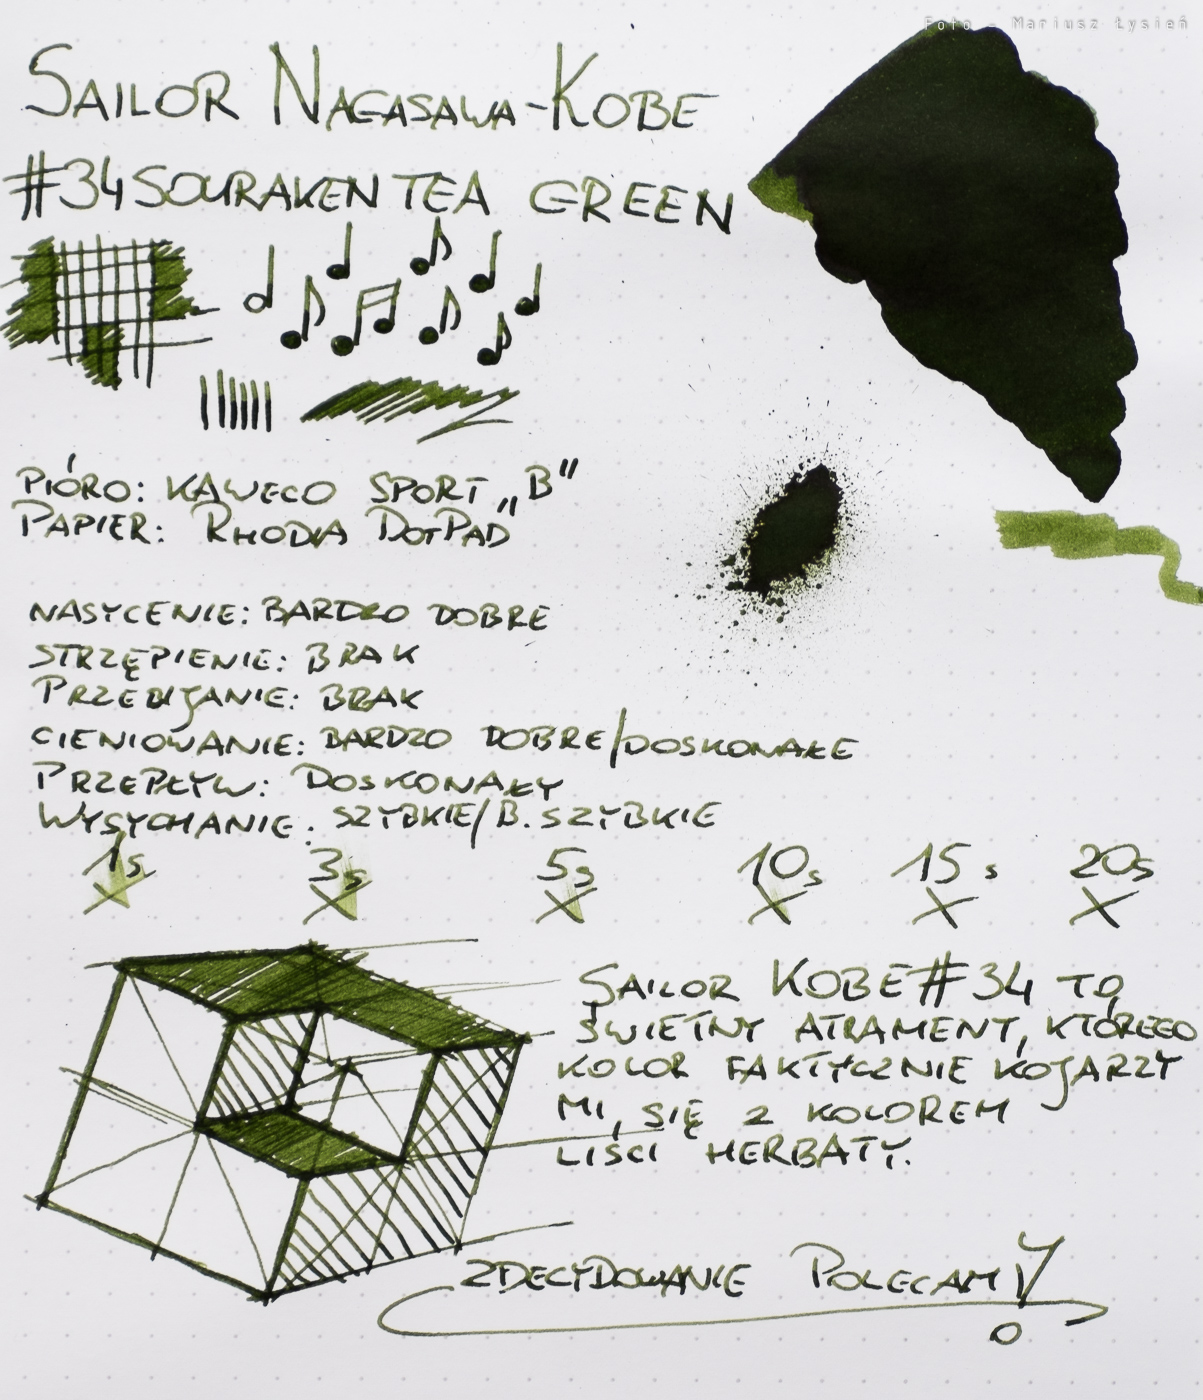 Foto - Mariusz Łysień
SAILOR NAGASAWA-KOBE
#34 SOURAKEN TEA GREEN
PIÓRO: KAWECO SPORT "B"
PAPIER: RHODIA DOTPAD"
NASYCENIE: BARDZO DOBRE
STRZĘPIENIE: BRAK
PRZEBIJANIE: BRAK
CIENIOWANIE: BARDZO DOBRE/DOSKONAŁE
PRZEPŁYW: DOSKONAŁY
WYSYCHANIE: SZYBKIE/B. SZYBKIE
1s 3s 5s 10s 15s 20s
SAILOR KOBE #34 TO
ŚWIETNY ATRAMENT, KTÓREGO
KOLOR FAKTYCZNIE KOJARZY
MI SIĘ Z KOLOREM
LIŚCI HERBATY.
ZDECYDOWANIE POLECAM!